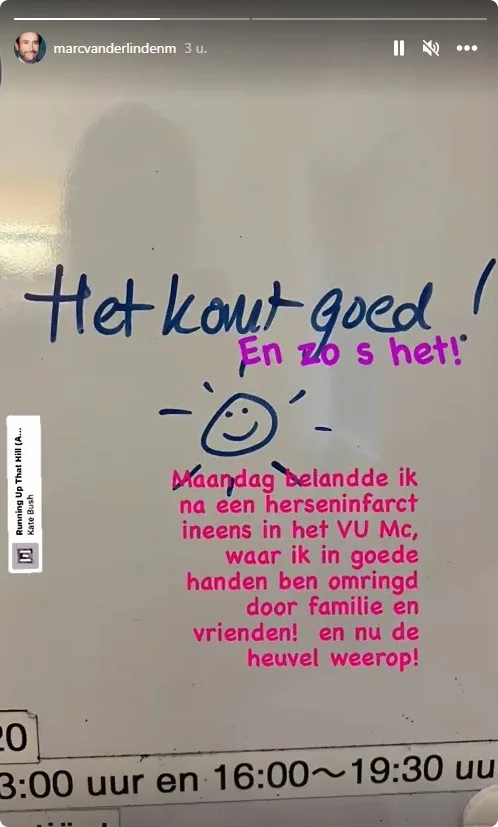 marcvanderlindenm 3 u.
Het komt goed!
En zo s het!
Running Up That Hill (A...
Kate Bush
Maandag belandde ik
na een herseninfarct
ineens in het VU Mc,
waar ik in goede
handen ben omringd
door familie en
vrienden! en nu de
heuvel weerop!
20
3:00 uur en 16:00～19:30 uu